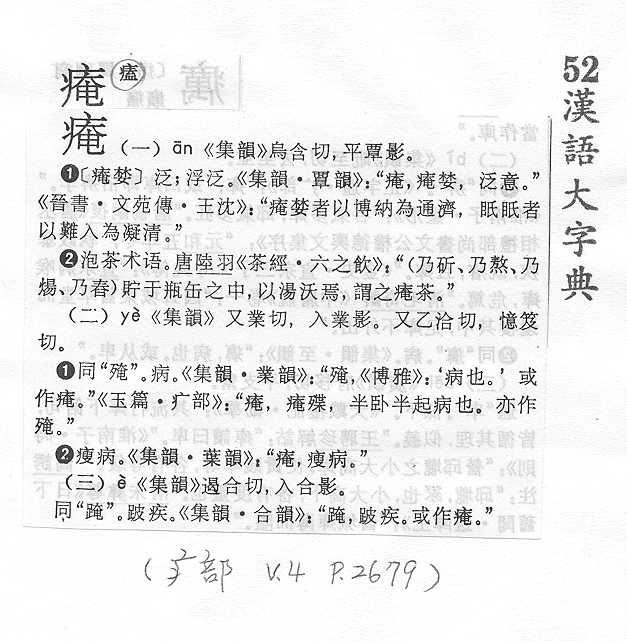 52 漢語大字典
痷 瘟
痷
(一) ān《集韻》烏含切，平覃影。
❶〔痷婪〕泛；浮泛。《集韻·覃韻》：“痷，痷婪，泛意。”
《晉書·文苑傳·王沈》：“痷婪者以博納為通濟，眂眂者
以難入為凝清。”
❷泡茶术语。唐陸羽《茶經·六之飲》：“(乃斫、乃熬、乃
煬、乃舂)貯于瓶缶之中，以湯沃焉，謂之痷茶。”
(二) yè《集韻》又業切，入業影。又乙洽切，憶笈
切。
❶同“殗”。病。《集韻·業韻》：“殗，《博雅》：‘病也。’或
作痷。”《玉篇·疒部》：“痷，痷殜，半卧半起病也。亦作
殗。”
❷瘦病。《集韻·葉韻》：“痷，瘦病。”
(三) è《集韻》遏合切，入合影。
同“䟾”。跛疾。《集韻·合韻》：“䟾，跛疾。或作痷。”
(疒部 V.4 P.2679)